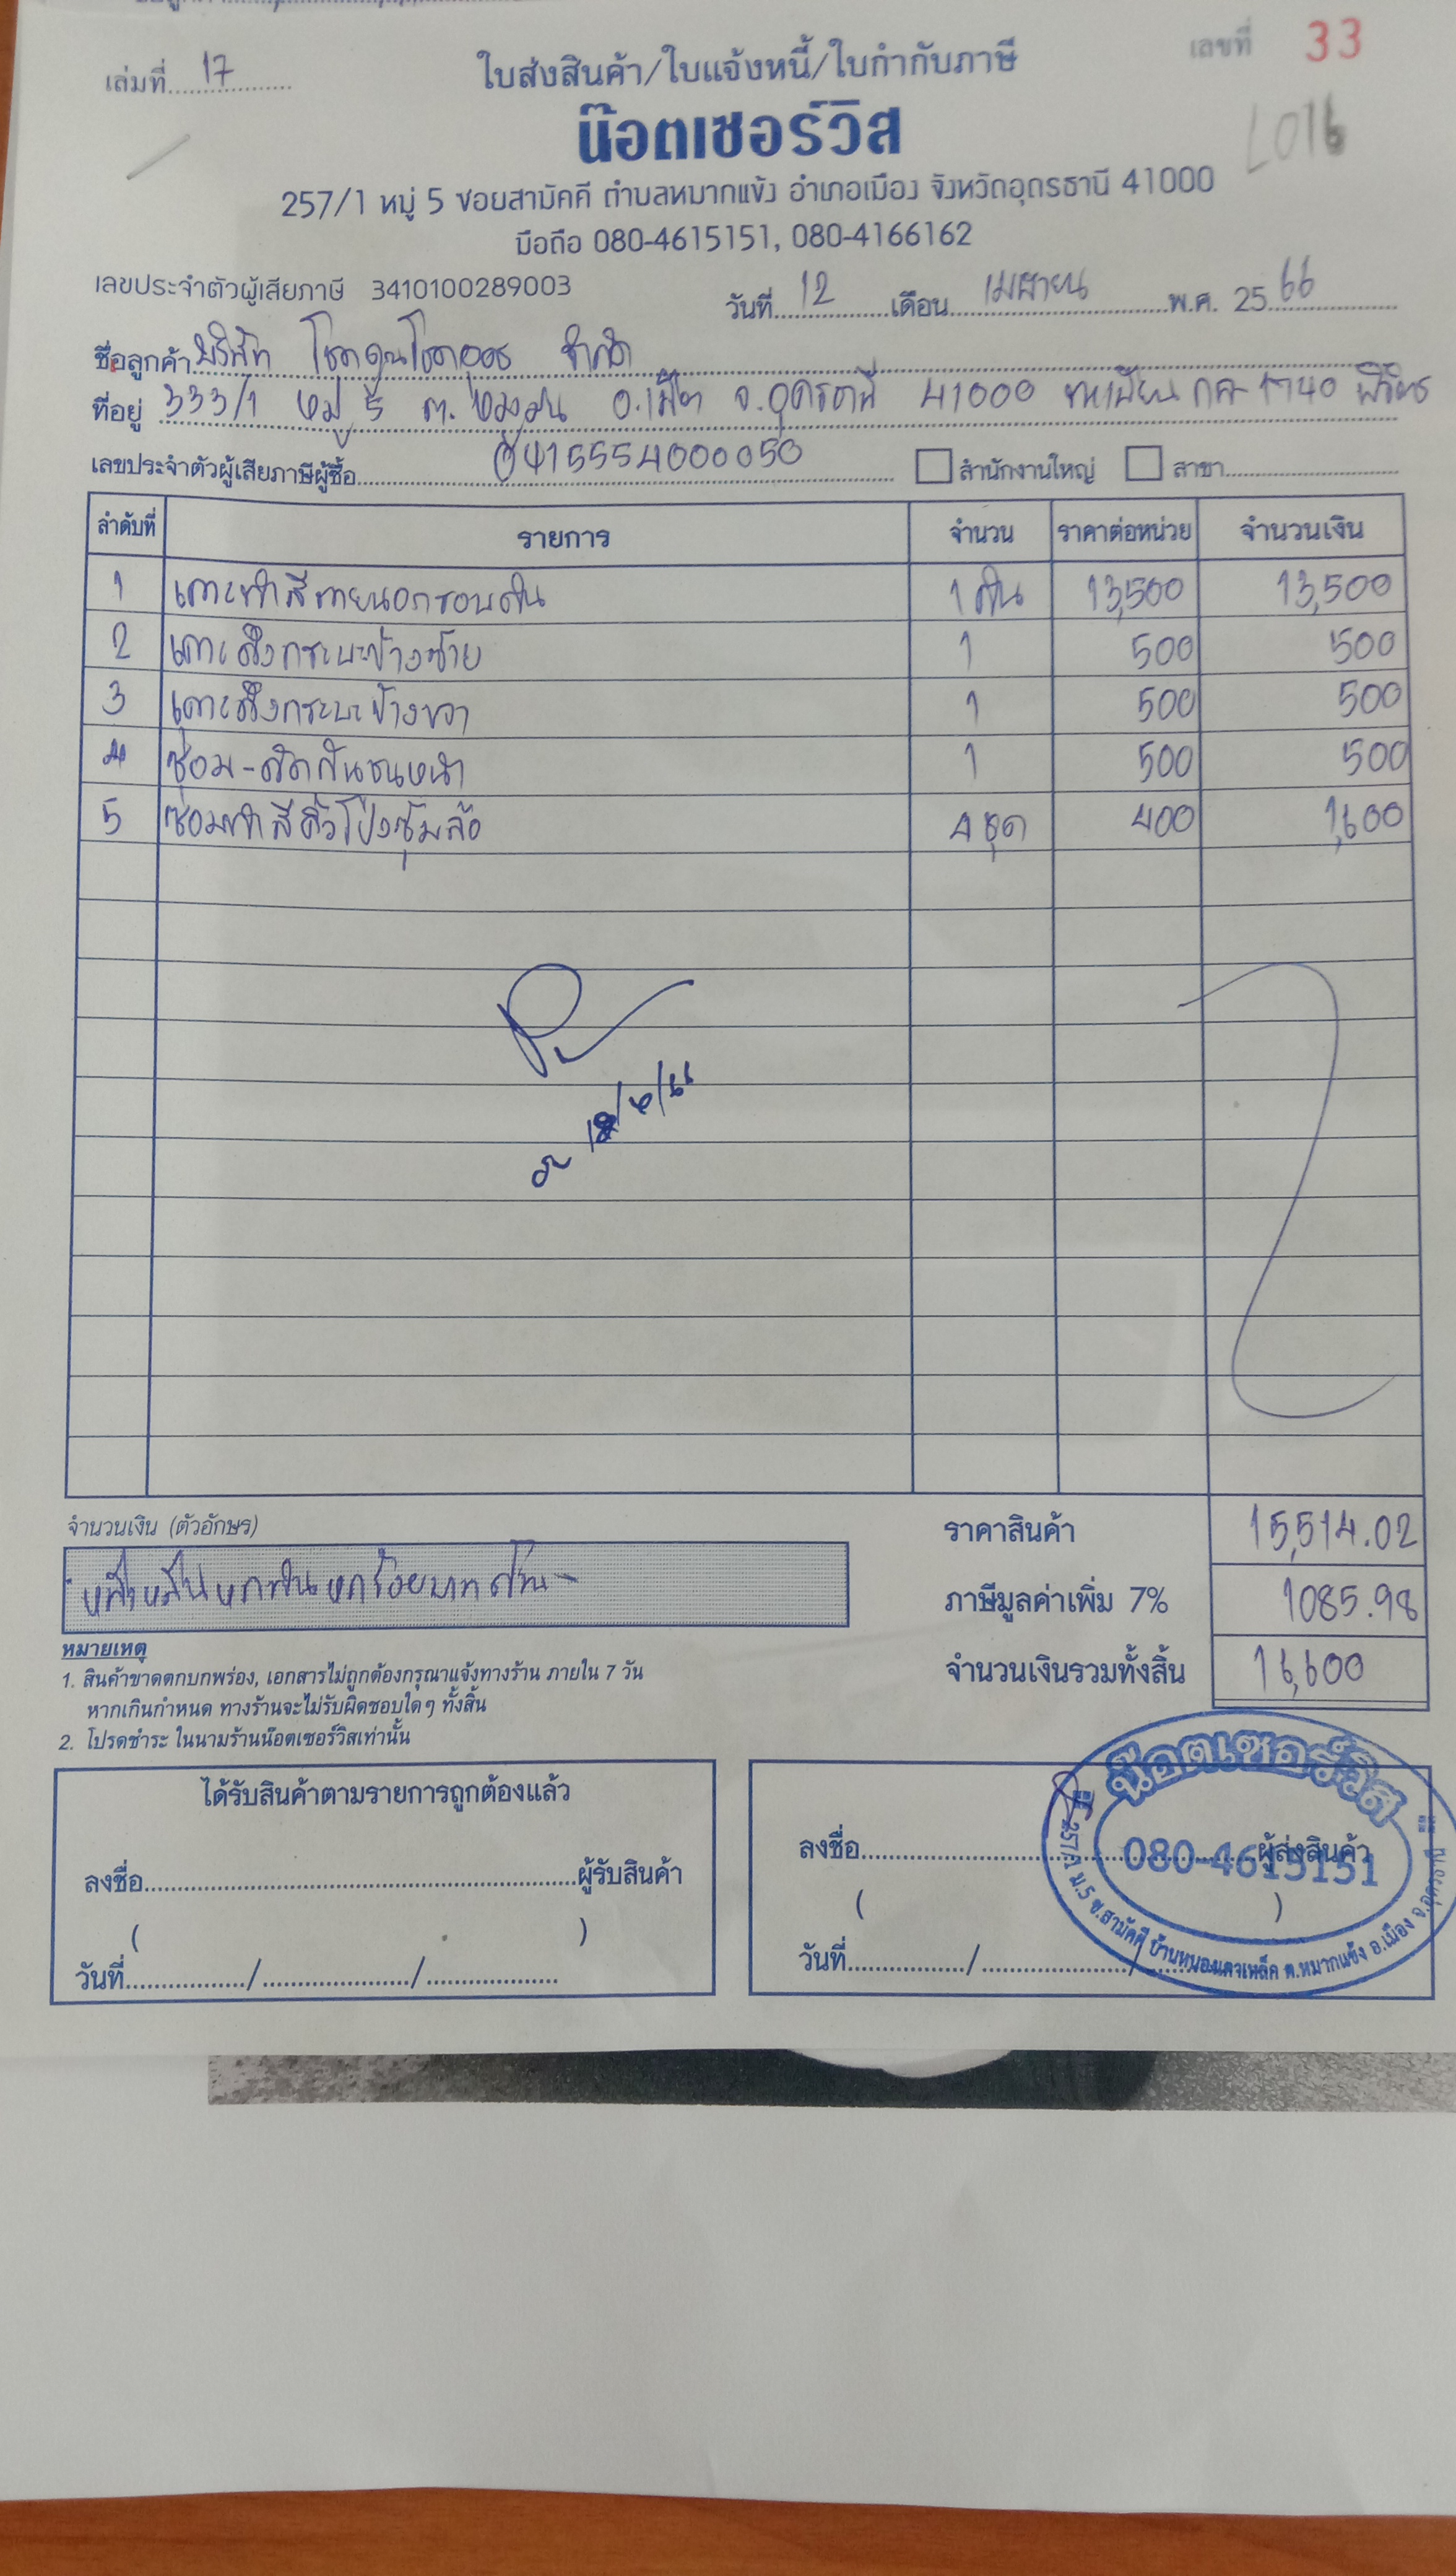 เล่มที่ 17
ใบส่งสินค้า/ใบแจ้งหนี้/ใบกำกับภาษี
เลขที่ 33
L016
น๊อตเซอร์วิส
257/1 หมู่ 5 ซอยสามัคคี ตำบลหมากแข้ง อำเภอเมือง จังหวัดอุดรธานี 41000
มือถือ 080-4615151, 080-4166162
เลขประจำตัวผู้เสียภาษี 3410100289003
วันที่ 12 เดือน เมษายน พ.ศ. 2566
ชื่อลูกค้า บริษัท จำกัด
ที่อยู่ 333/1 หมู่ 5 ต. อ.เมือง จ.อุดรธานี 41000 ทะเบียน
เลขประจำตัวผู้เสียภาษีผู้ซื้อ 0415554000050 สำนักงานใหญ่ สาขา
ลำดับที่ รายการ จำนวน ราคาต่อหน่วย จำนวนเงิน
1 เคาะทำสีภายนอกรอบคัน 1 คัน 13,500 13,500
2 เคาะดึงกระบะข้างซ้าย 1 500 500
3 เคาะดึงกระบะข้างขวา 1 500 500
4 ซ่อม-ดัดกันชนหน้า 1 500 500
5 ซ่อมทำสีคิ้วโป่งซุ้มล้อ 4 ชุด 400 1,600
จำนวนเงิน (ตัวอักษร)
หนึ่งหมื่นหกพันหกร้อยบาทถ้วน-
ราคาสินค้า 15,514.02
ภาษีมูลค่าเพิ่ม 7% 1085.98
จำนวนเงินรวมทั้งสิ้น 16,600
หมายเหตุ
1. สินค้าขาดตกบกพร่อง, เอกสารไม่ถูกต้องกรุณาแจ้งทางร้าน ภายใน 7 วัน
หากเกินกำหนด ทางร้านจะไม่รับผิดชอบใดๆ ทั้งสิ้น
2. โปรดชำระ ในนามร้านน๊อตเซอร์วิสเท่านั้น
ได้รับสินค้าตามรายการถูกต้องแล้ว
ลงชื่อ ผู้รับสินค้า
( )
วันที่ / /
ลงชื่อ ผู้ส่งสินค้า
( )
วันที่ / /
น๊อตเซอร์วิส
080-4615151
257/1 ม.5 ซ.สามัคคี บ้านหนองแวงเหล็ก ต.หมากแข้ง อ.เมือง จ.อุดรธานี